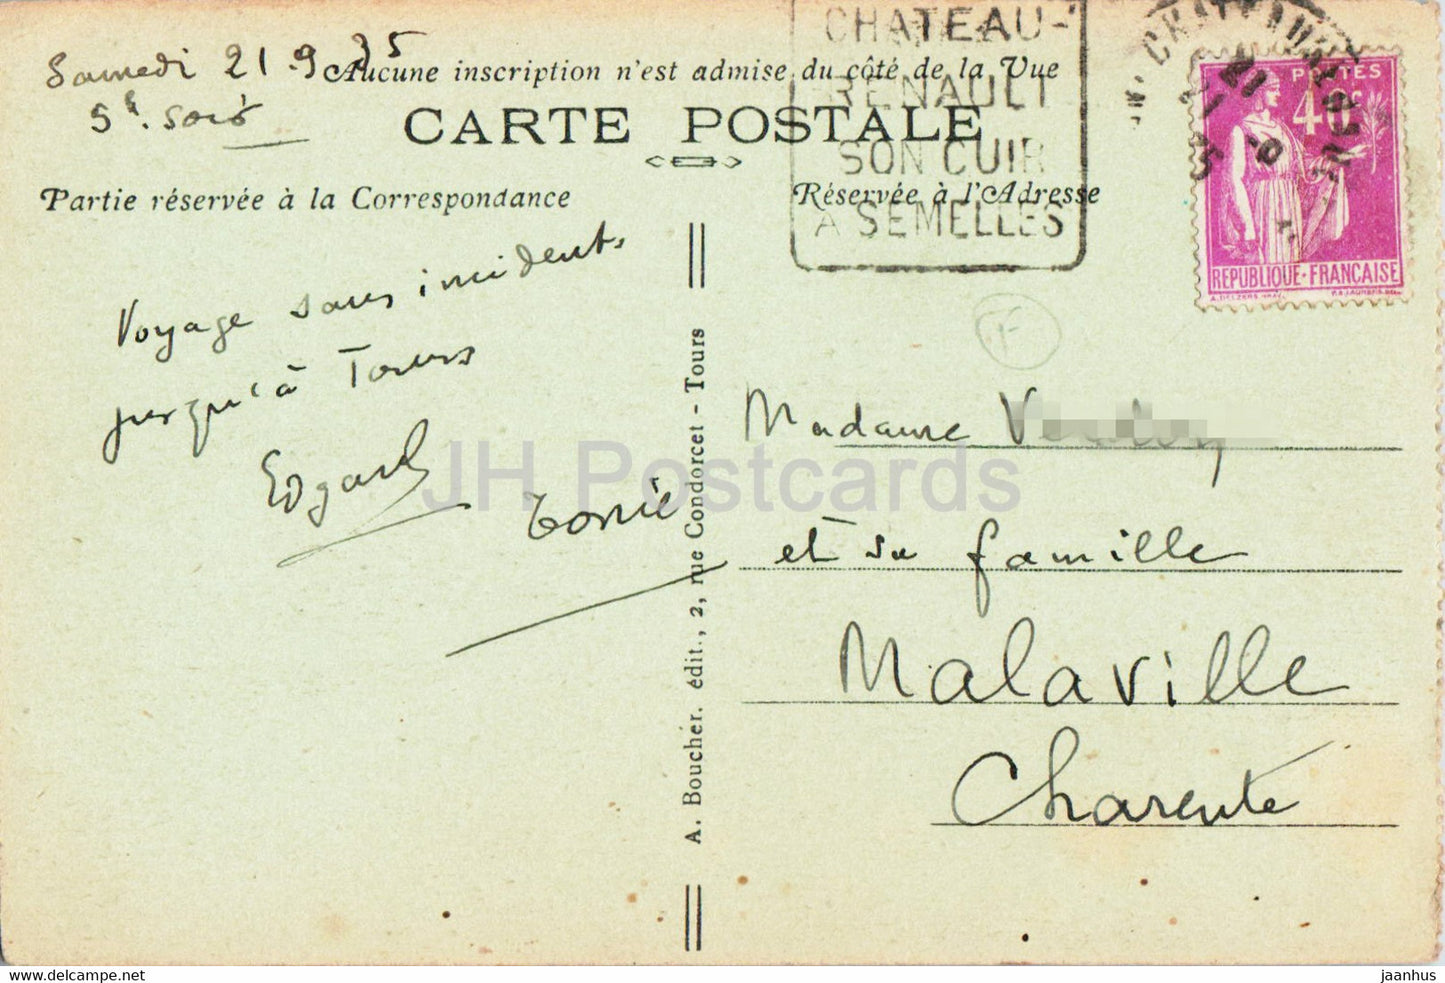 Samedi 21.9 35
5h. soir
Aucune inscription n'est admise du côté de la Vue
CARTE POSTALE
Partie réservée à la Correspondance
Réservée à l'Adresse
CHATEAU-
RENAULT
SON CUIR
A SEMELLES
POSTES
40c
REPUBLIQUE·FRANÇAISE
Voyage sans incidents
jusqu'à Tours
Edgard
F
Madame
et sa famille
Malaville
Charente
A. Boucher. édit., 2, rue Condorcet - Tours
JH Postcards
https://www.hippostcard.com/store/jaanhus
jaanhus